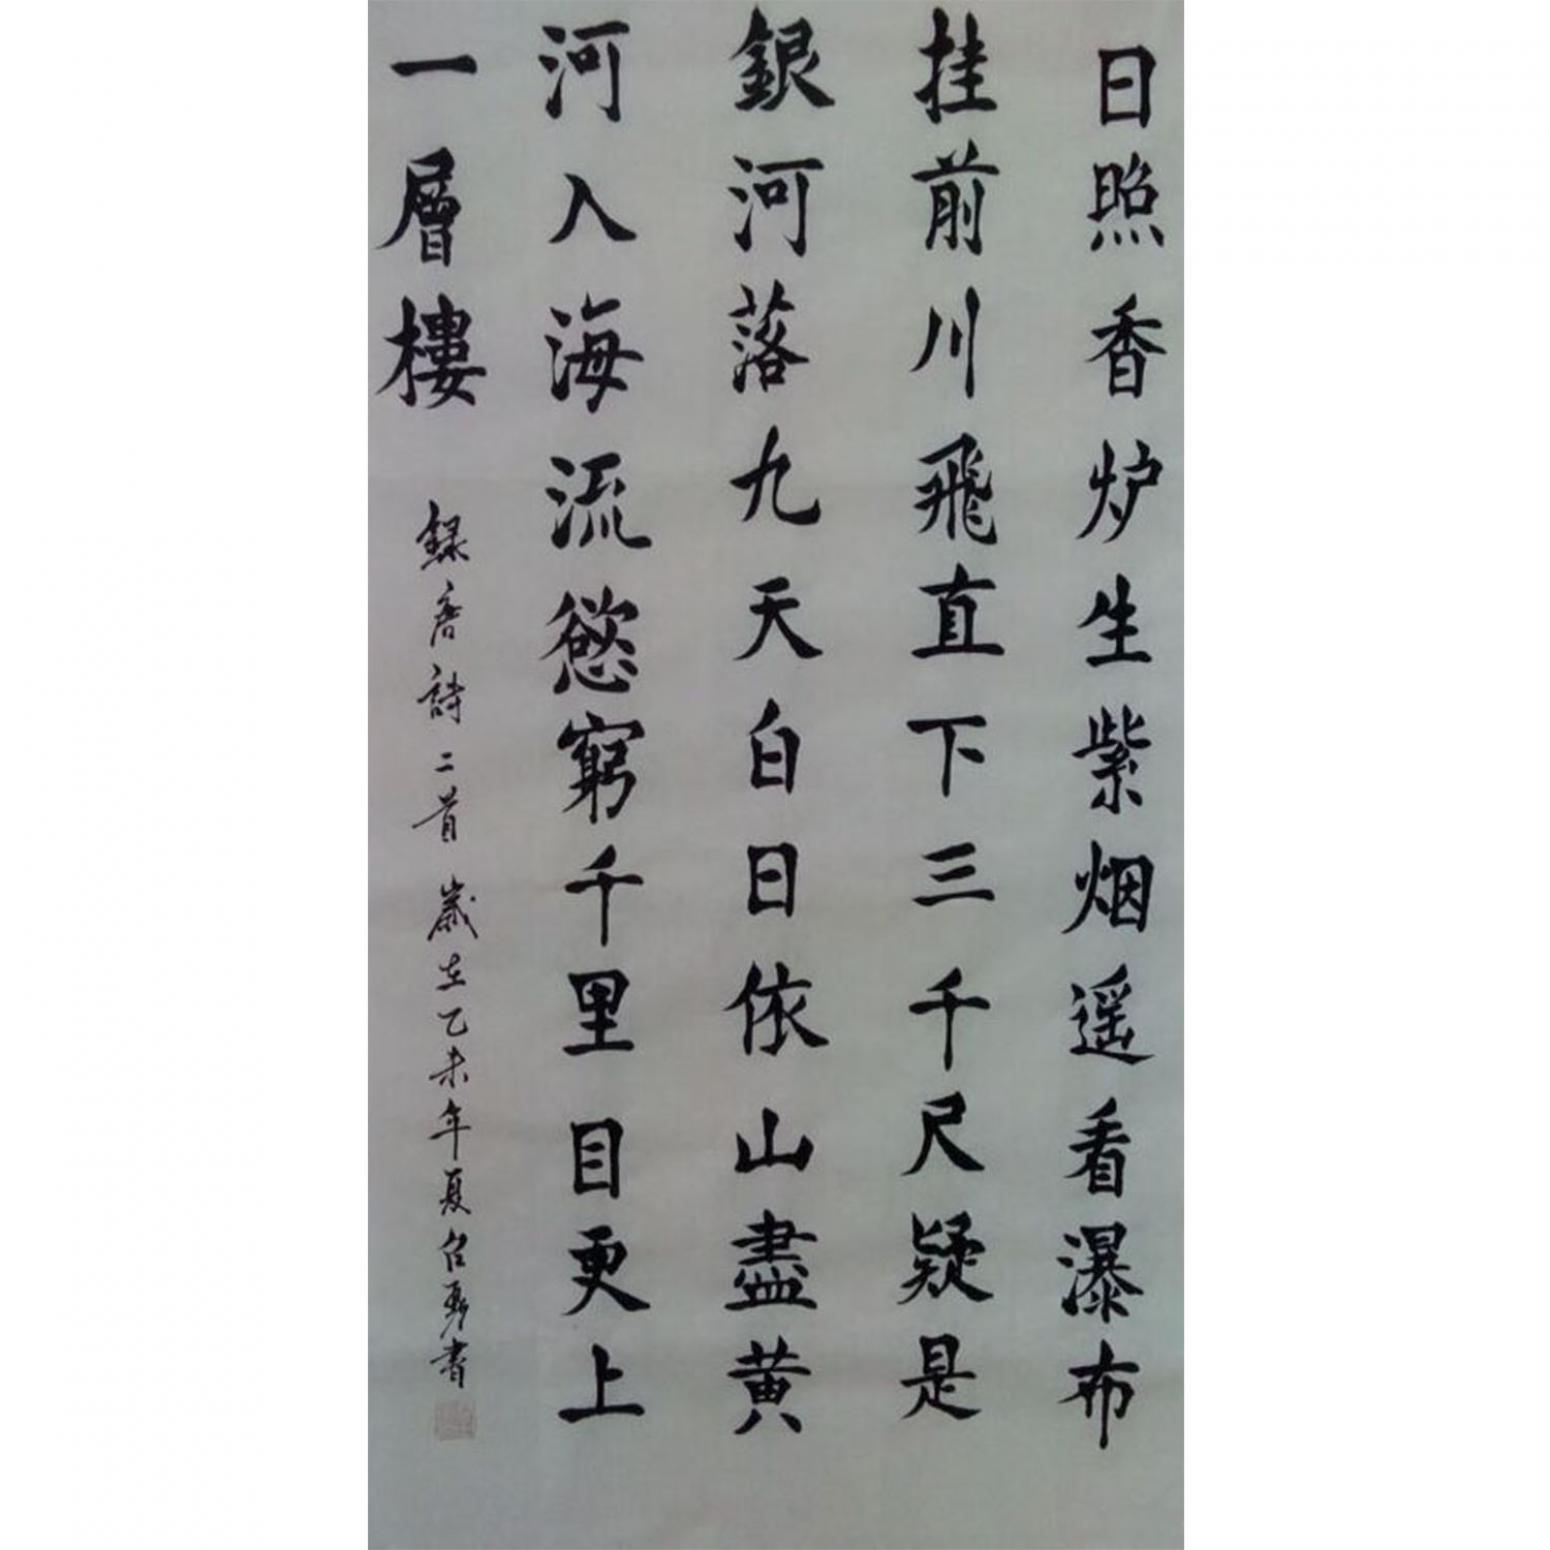 日照香炉生紫烟遥看瀑布
挂前川飛直下三千尺疑是
銀河落九天白日依山盡黄
河入海流慾窮千里目更上
一層樓
録唐詩二首歲在乙未年夏召勇書